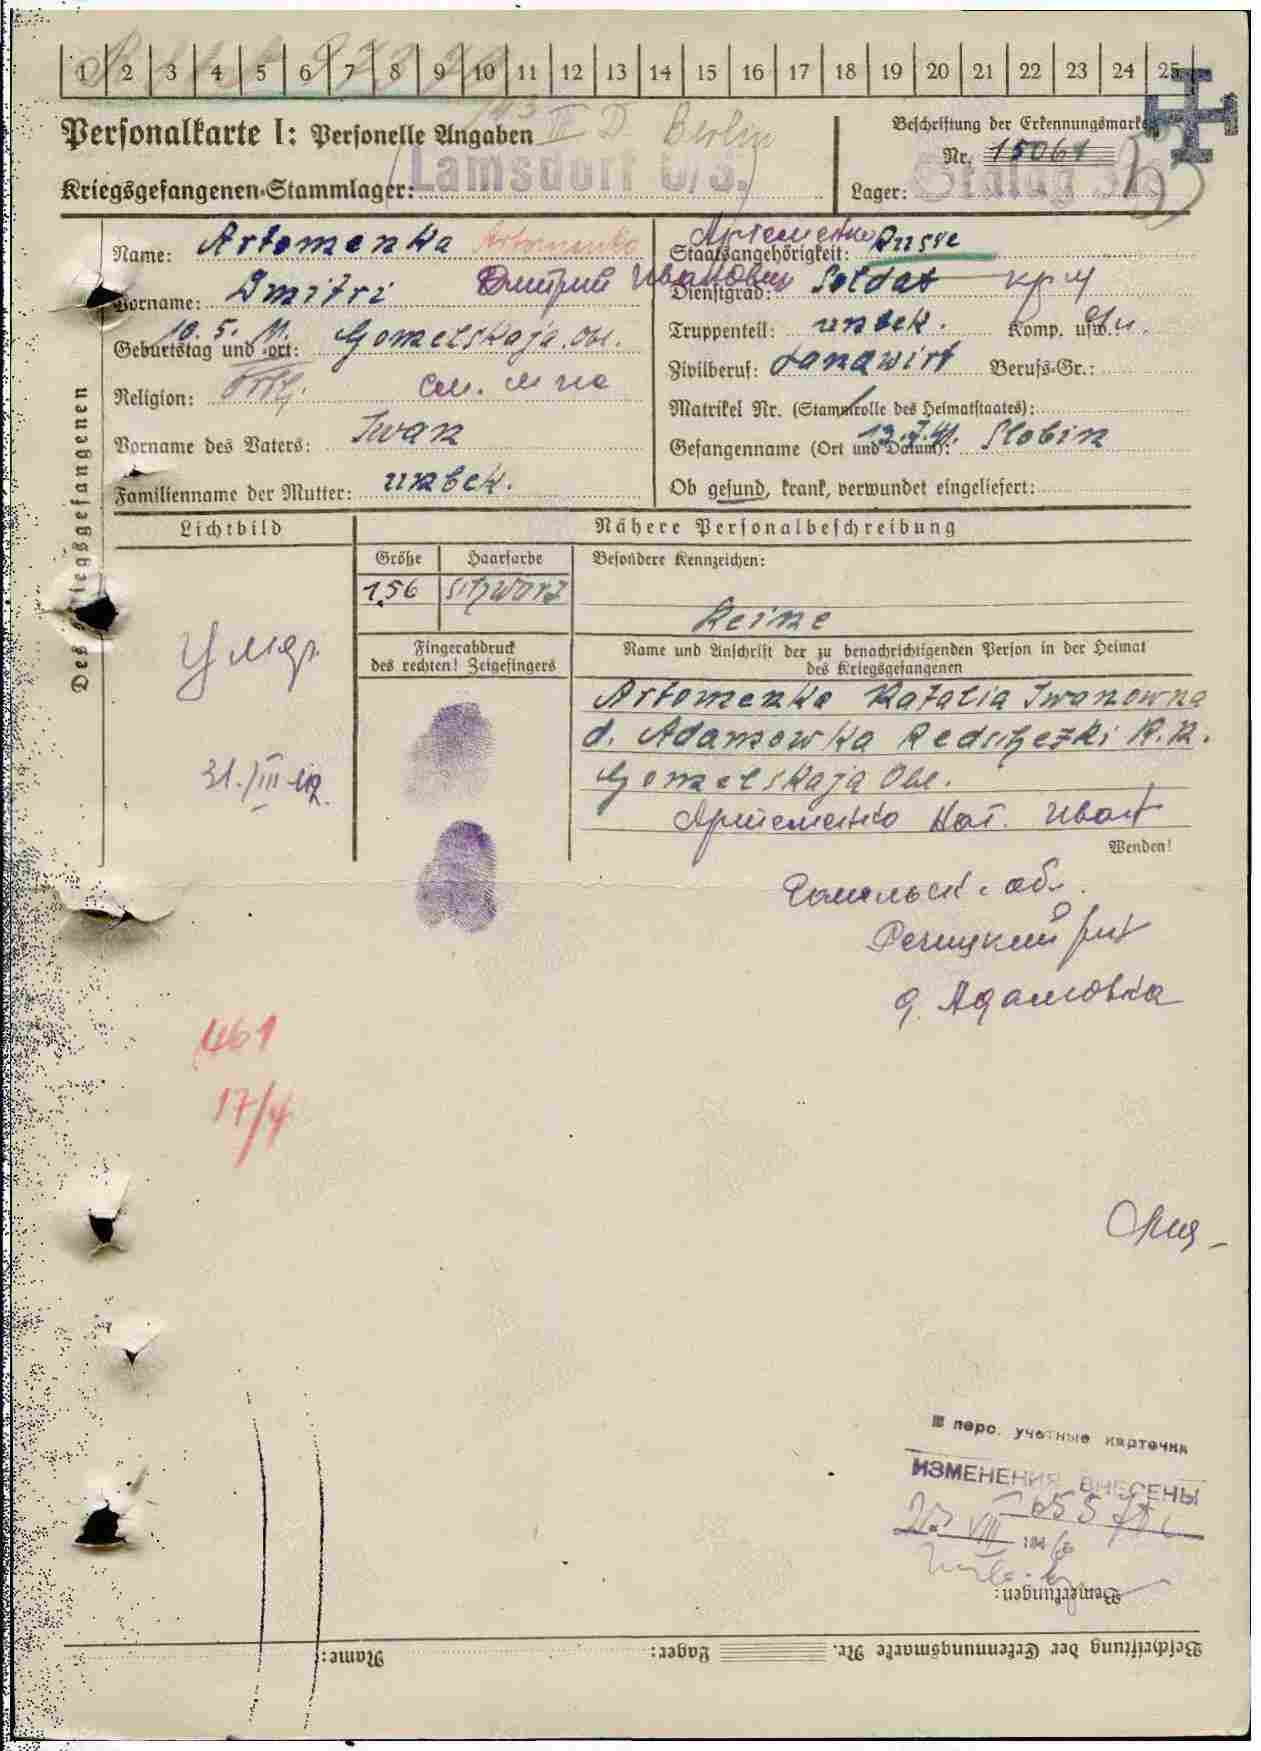 1 2 3 4 5 6 7 8 9 10 11 12 13 14 15 16 17 18 19 20 21 22 23 24 25
Personalkarte I: Personelle Angaben
III D Berlin
Beschriftung der Erkennungsmarke
Nr. 15061
Kriegsgefangenen-Stammlager: Lamsdorf O/S.
Lager: Stalag
Des Kriegsgefangenen
Name: Artomenka Artomenko
Артеменко
Staatsangehörigkeit: Russe
Vorname: Dmitri Дмитрий Иванович
Dienstgrad: Soldat кр-ц
Geburtstag und -ort: 10. 5. 11. Gomelskaja. Obl.
Truppenteil: unbek. Komp. usw.: u.
Religion: Orth.
Zivilberuf: Landwirt Berufs-Gr.:
Matrikel Nr. (Stammrolle des Heimatstaates):
Vorname des Vaters: Iwan
Gefangenname (Ort und Datum): 13.7.41. Slobin
Familienname der Mutter: unbek.
Ob gesund, krank, verwundet eingeliefert:
Lichtbild
Nähere Personalbeschreibung
Größe Haarfarbe Besondere Kennzeichen:
1,56 schwarz
Keine
Fingerabdruck
des rechten! Zeigefingers
Name und Anschrift der zu benachrichtigenden Person in der Heimat
des Kriegsgefangenen
Artomenko Natalia Iwanowna
d. Adamowka Redschezki R.N.
Gomelskaja Obl.
Артеменко Нат. Иван
Wenden!
Умер
31./III 42.
Гомельск. обл.
Речицкий р-н
д. Адамовка
461
17/4
III перс. учетные карточки
ИЗМЕНЕНИЯ ВНЕСЕНЫ
VIII 1946
Bemerkungen:
Beschriftung der Erkennungsmarke Nr. Lager: Name: